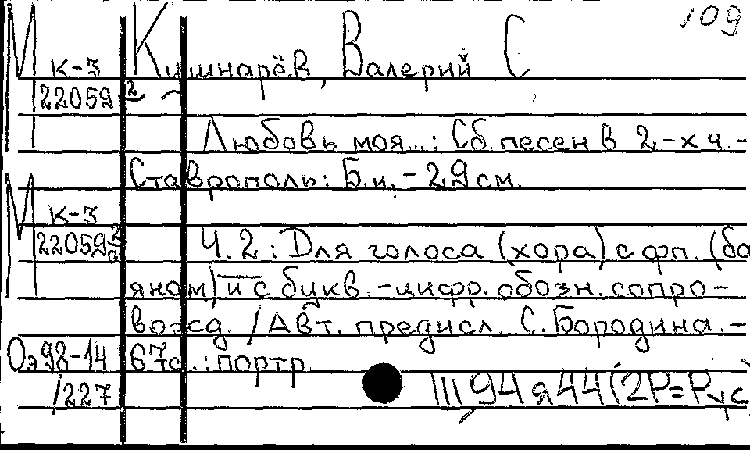 109
М к-3 Кушнарёв, Валерий С
22059 2
Любовь моя...: Сб. песен в 2-х ч. -
Ставрополь: Б.и. - 29 см.
М к-3
22059 Ч. 2: Для голоса (хора) с фп. (ба
яном) и с букв.-цифр. обозн. сопро-
вожд. / Авт. предисл. С. Бородина. -
Оэ98-14 67с.: портр.
/227 Щ94я44(2Р=Рус